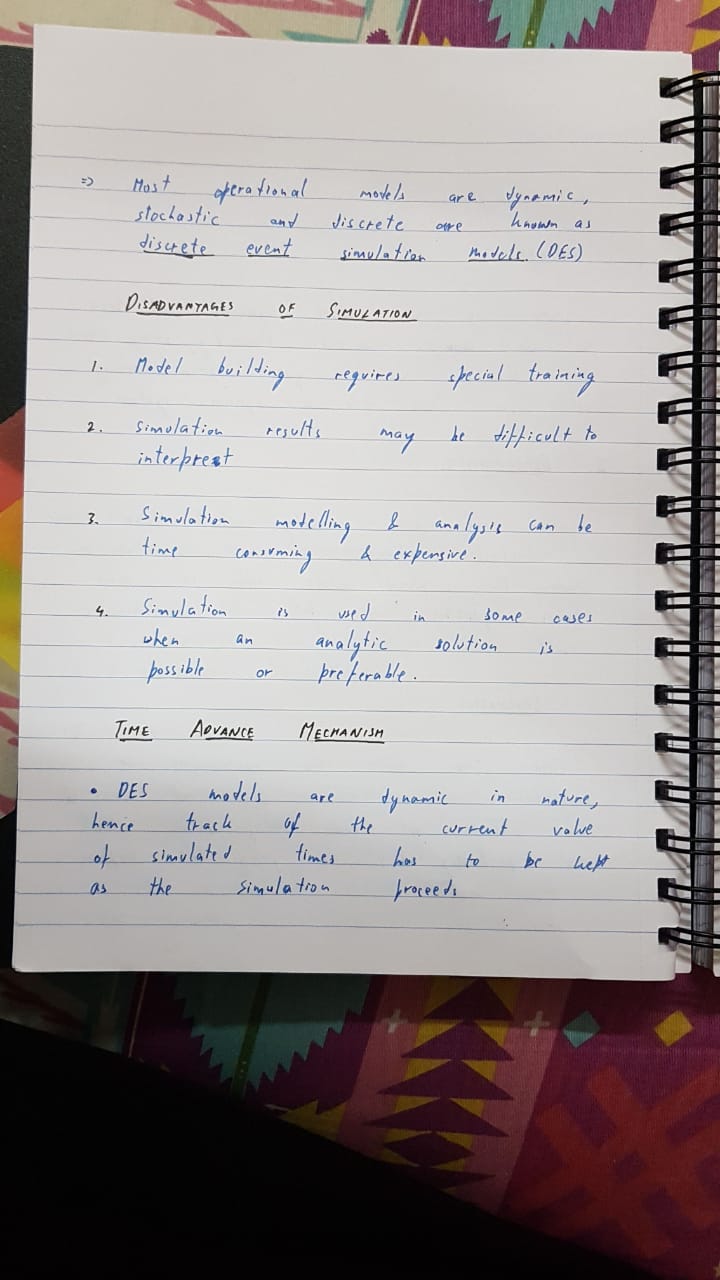 => Most operational models are dynamic,
stochastic and discrete are known as
discrete event simulation models. (DES)
DISADVANTAGES OF SIMULATION
1. Model building requires special training
2. Simulation results may be difficult to
interprest
3. Simulation modelling & analysis can be
time consuming & expensive.
4. Simulation is used in some cases
when an analytic solution is
possible or preferable.
TIME ADVANCE MECHANISM
• DES models are dynamic in nature,
hence track of the current value
of simulated times has to be kept
as the simulation proceeds